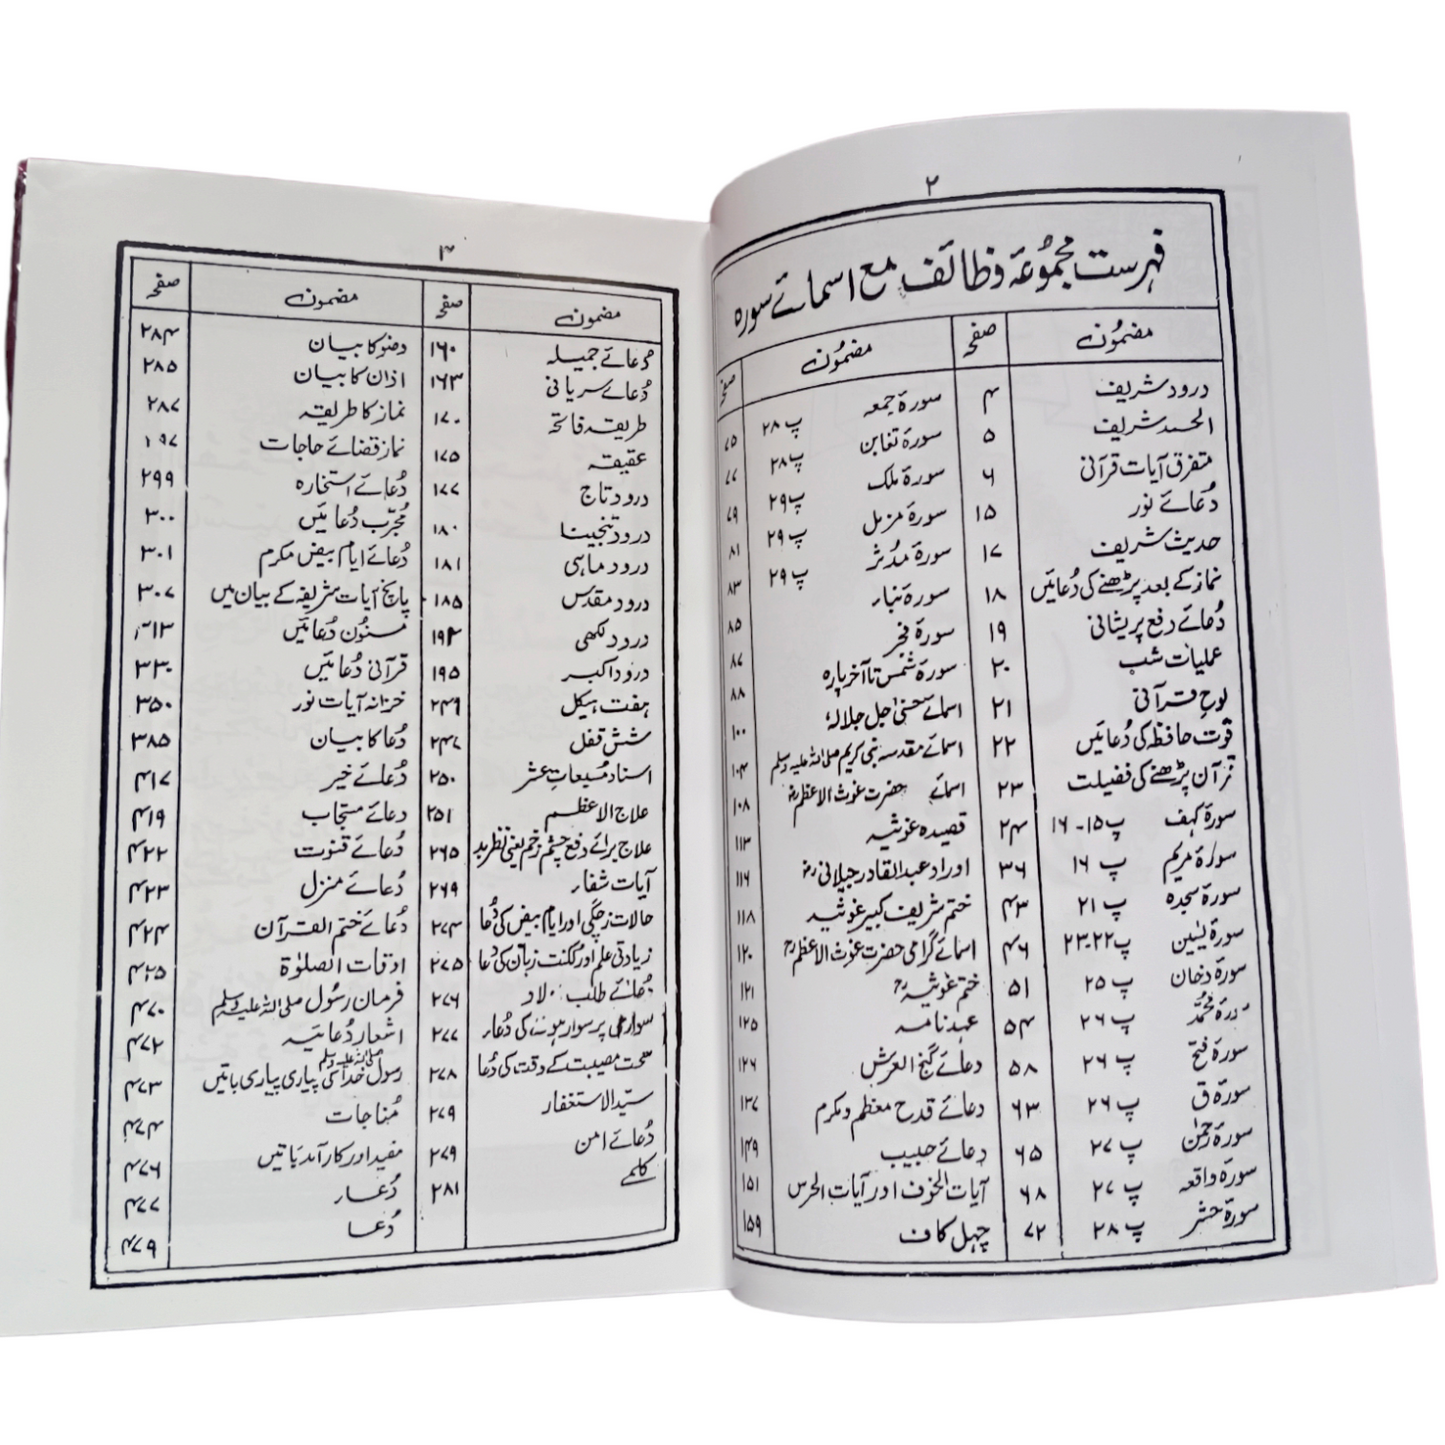 ۲
فہرست مجموعۂ وظائف مع اسمائے سورہ
مضمون صفحہ مضمون صفحہ
درود شریف ۴ سورۃ جمعہ پ ۲۸ ۷۵
الحمد شریف ۵ سورۃ تغابن پ ۲۸ ۷۷
متفرق آیات قرآنی ۶ سورۃ ملک پ ۲۹ ۷۹
دُعائے نور ۱۵ سورۃ مزمل پ ۲۹ ۸۱
حدیث شریف ۱۷ سورۃ مدثر پ ۲۹ ۸۳
نماز کے بعد پڑھنے کی دُعائیں ۱۸ سورۃ نبار ۸۵
دُعائے رفع پریشانی ۱۹ سورۃ فجر ۸۷
عملیات شب ۲۰ سورۃ شمس تا آخر پارہ ۸۸
لوح قرآنی ۲۱ اسمائے حسنیٰ اجل جلالہٗ ۱۰۰
قوت حافظہ کی دُعائیں ۲۲ اسمائے مقدسہ نبی کریم صلی اللہ علیہ وسلم ۱۰۴
قرآن پڑھنے کی فضیلت ۲۳ اسمائے حضرت غوث الاعظم رض ۱۰۸
سورۃ کہف پ ۱۵-۱۶ ۲۴ قصیدہ غوثیہ ۱۱۳
سورۃ مریم پ ۱۶ ۳۶ اوراد عبدالقادر جیلانی رض ۱۱۶
سورۃ سجدہ پ ۲۱ ۴۳ ختم شریف کبیر غوثیہ ۱۱۸
سورۃ یٰسین پ ۲۲-۲۳ ۴۶ اسمائے گرامی حضرت غوث الاعظم رح ۱۲۰
سورۃ دخان پ ۲۵ ۵۱ ختم غوثیہ رح ۱۲۱
سورۃ محمد پ ۲۶ ۵۴ عہد نامہ ۱۲۵
سورۃ فتح پ ۲۶ ۵۸ دعائے گنج العرش ۱۲۶
سورۃ ق پ ۲۶ ۶۳ دعائے قدح معظم و مکرم ۱۳۷
سورۃ رحمٰن پ ۲۷ ۶۵ دعائے حبیب ۱۴۹
سورۃ واقعہ پ ۲۷ ۶۸ آیات الخوف اور آیات الحرس ۱۵۱
سورۃ حشر پ ۲۸ ۷۲ چہل کاف ۱۵۹
۳
مضمون صفحہ مضمون صفحہ
دُعائے جمیلہ ۱۶۰ وضو کا بیان ۲۸۴
دُعائے سریانی ۱۶۳ اذان کا بیان ۲۸۵
طریقہ فاتحہ ۱۷۰ نماز کا طریقہ ۲۸۷
عقیقہ ۱۷۵ نماز قضائے حاجات ۲۹۷
درود تاج ۱۷۷ دُعائے استخارہ ۲۹۹
درود تنجینا ۱۸۰ مُجرّب دُعائیں ۳۰۰
درود ماہی ۱۸۱ دُعائے ایام بیض مکرم ۳۰۱
درود مقدس ۱۸۵ پانچ آیات شریفہ کے بیان میں ۳۰۷
درود لکھی ۱۹۳ مسنون دُعائیں ۳۱۳
درود اکبر ۱۹۵ قرآنی دُعائیں ۳۳۰
ہفت ہیکل ۲۴۶ خزانہ آیات نور ۳۵۰
شش قفل ۲۴۷ دُعا کا بیان ۳۸۵
اسناد مُسبعات عشر ۲۵۰ دُعائے خیر ۴۱۷
علاج الاعظم ۲۵۱ دعائے مستجاب ۴۱۹
علاج برائے دفع چشم زخم یعنی نظر بد ۲۶۵ دُعائے قنوت ۴۲۲
آیات شفار ۲۶۹ دُعائے منزل ۴۲۳
حالات زچگی اور ایام بیض کی دُعا ۲۷۴ دُعائے ختم القرآن ۴۲۴
زیادتی علم اور لکنت زبان کی دُعا ۲۷۵ اوقات الصلوٰۃ ۴۲۵
دُعائے طلب اولاد ۲۷۶ فرمان رسول صلی اللہ علیہ وسلم ۴۷۰
سواری پر سوار ہونے کی دُعار ۲۷۷ اشعار دُعائیہ ۴۷۲
سخت مصیبت کے وقت کی دُعا ۲۷۸ رسول خدا صلی اللہ علیہ وسلم کی پیاری پیاری باتیں ۴۷۳
سیّد الاستغفار ۲۷۹ مُناجات ۴۷۴
دُعائے امن ۲۷۹ مفید اور کارآمد باتیں ۴۷۶
کلمے ۲۸۱ دُعار ۴۷۷
دُعا ۴۷۹